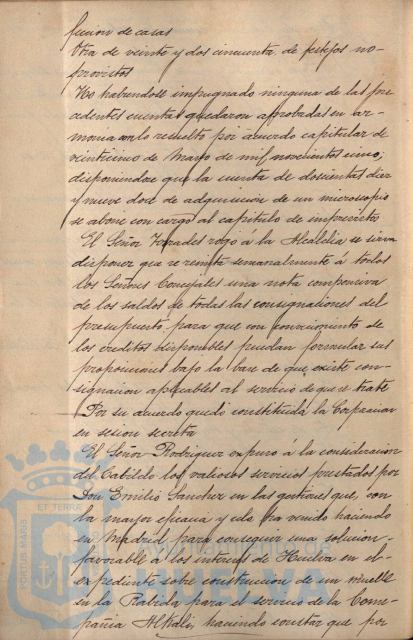 feccion de casas
Otra de veinte y dos cincuenta de festejos no-
previstos
No habiendose impugnado ninguna de las pre
cedentes cuentas quedaron aprobadas en ar-
monia con lo resuelto por acuerdo capitular de
veinticinco de Mayo de mil novecientos cinco,
disponiendose que la cuenta de doscientas diez
y nueve doce de adquisicion de un microscopio
se abone con cargo al capitulo de imprevistos
El Señor rogó á la Alcaldia se sirva
disponer que se remita semanalmente á todos
los Señores Concejales una nota comprensiva
de los saldos de todas las consignaciones del
presupuesto para que con conocimiento de
los creditos disponibles puedan formular sus
proposiciones bajo la base de que existe con-
signacion aplicables al servicio de que se trate
Por su acuerdo quedó constituida la Corporacion
en sesion secreta
El Señor Rodriguez expuso á la consideracion
del Cabildo los valiosos servicios prestados por
Don Emilio Sanchez en las gestiones que, con
la mayor eficacia y celo ha venido haciendo
en Madrid para conseguir una solucion
favorable á los intereses de Huelva en el
expediente sobre construccion de un muelle
en la Rabida para el servicio de la Com-
pañia Alkali, haciendo constar que por
ET TERRÆ
PORTUS MARIS
Ayuntamiento de
HUELVA